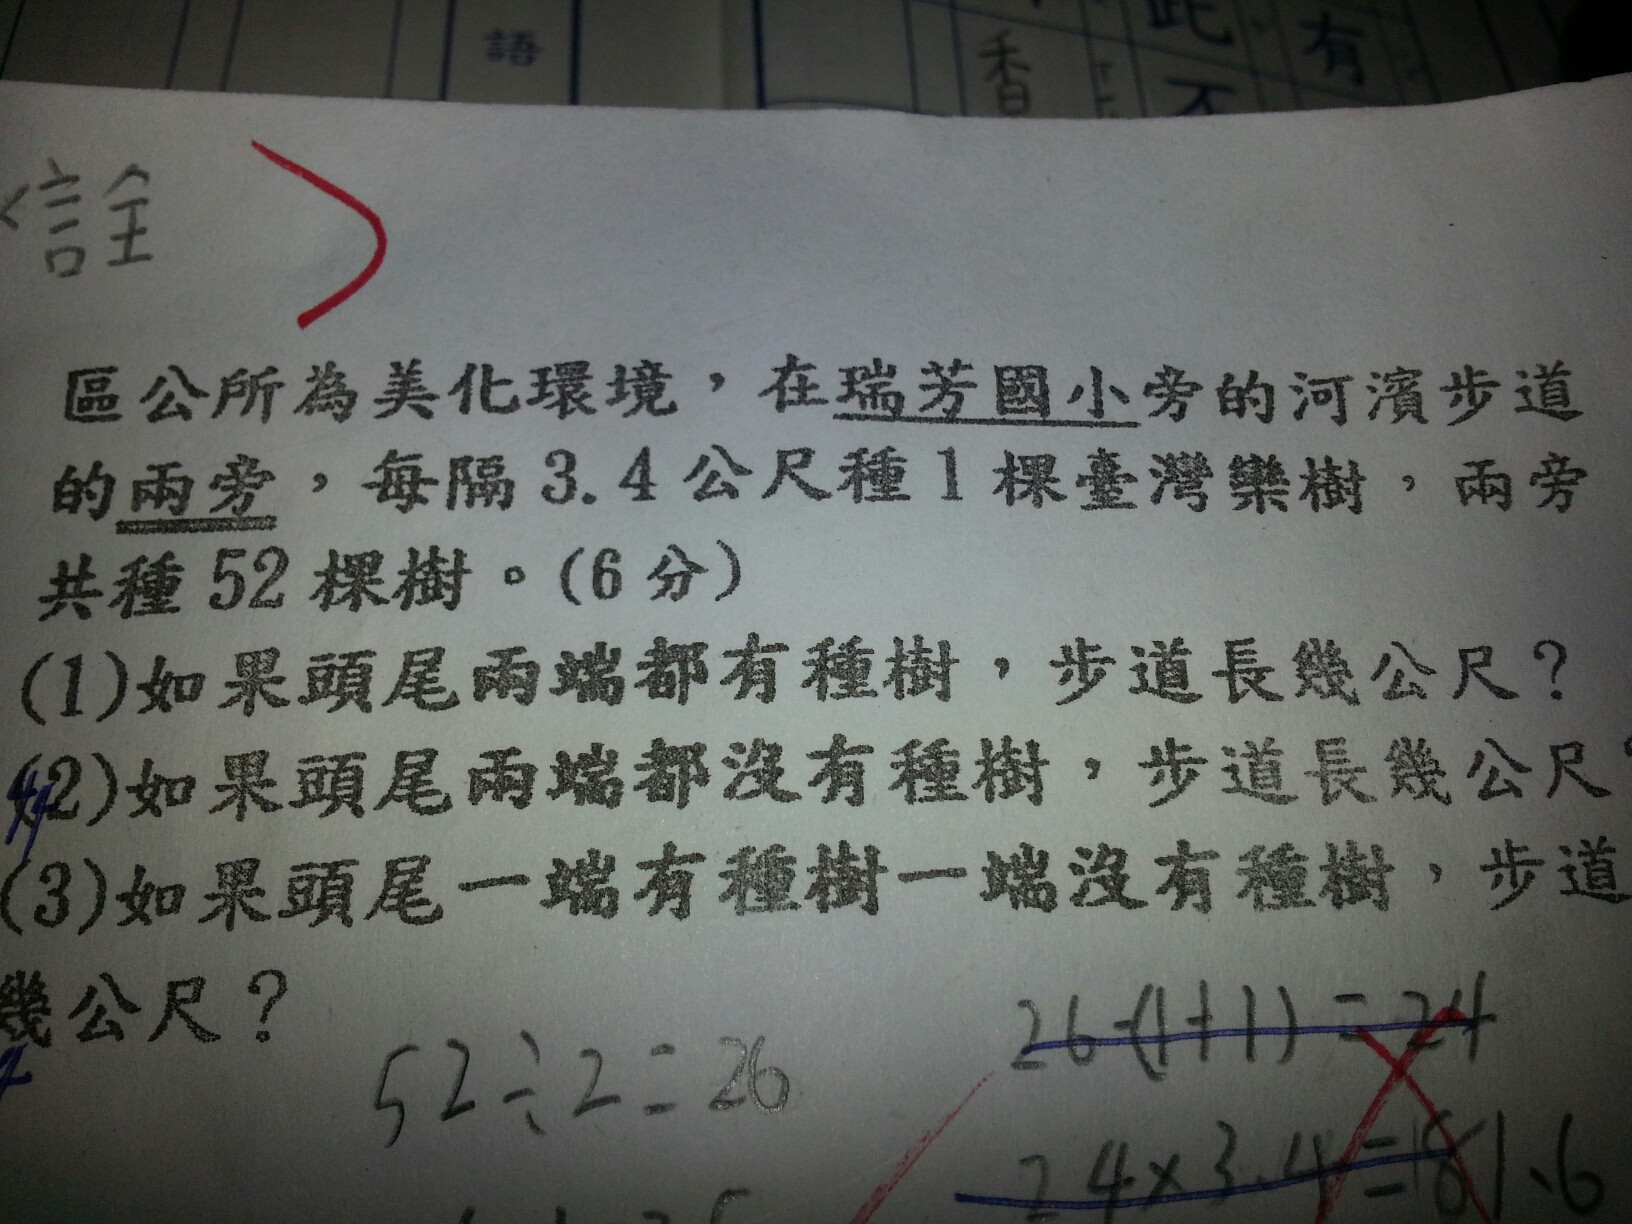 語
香
此
不
有
詮
區公所為美化環境，在瑞芳國小旁的河濱步道
的兩旁，每隔3.4公尺種1棵臺灣欒樹，兩旁
共種52棵樹。(6分)
(1)如果頭尾兩端都有種樹，步道長幾公尺？
(2)如果頭尾兩端都沒有種樹，步道長幾公尺？
(3)如果頭尾一端有種樹一端沒有種樹，步道
幾公尺？
52÷2=26
26-(1+1)=24
24×3.4=81.6